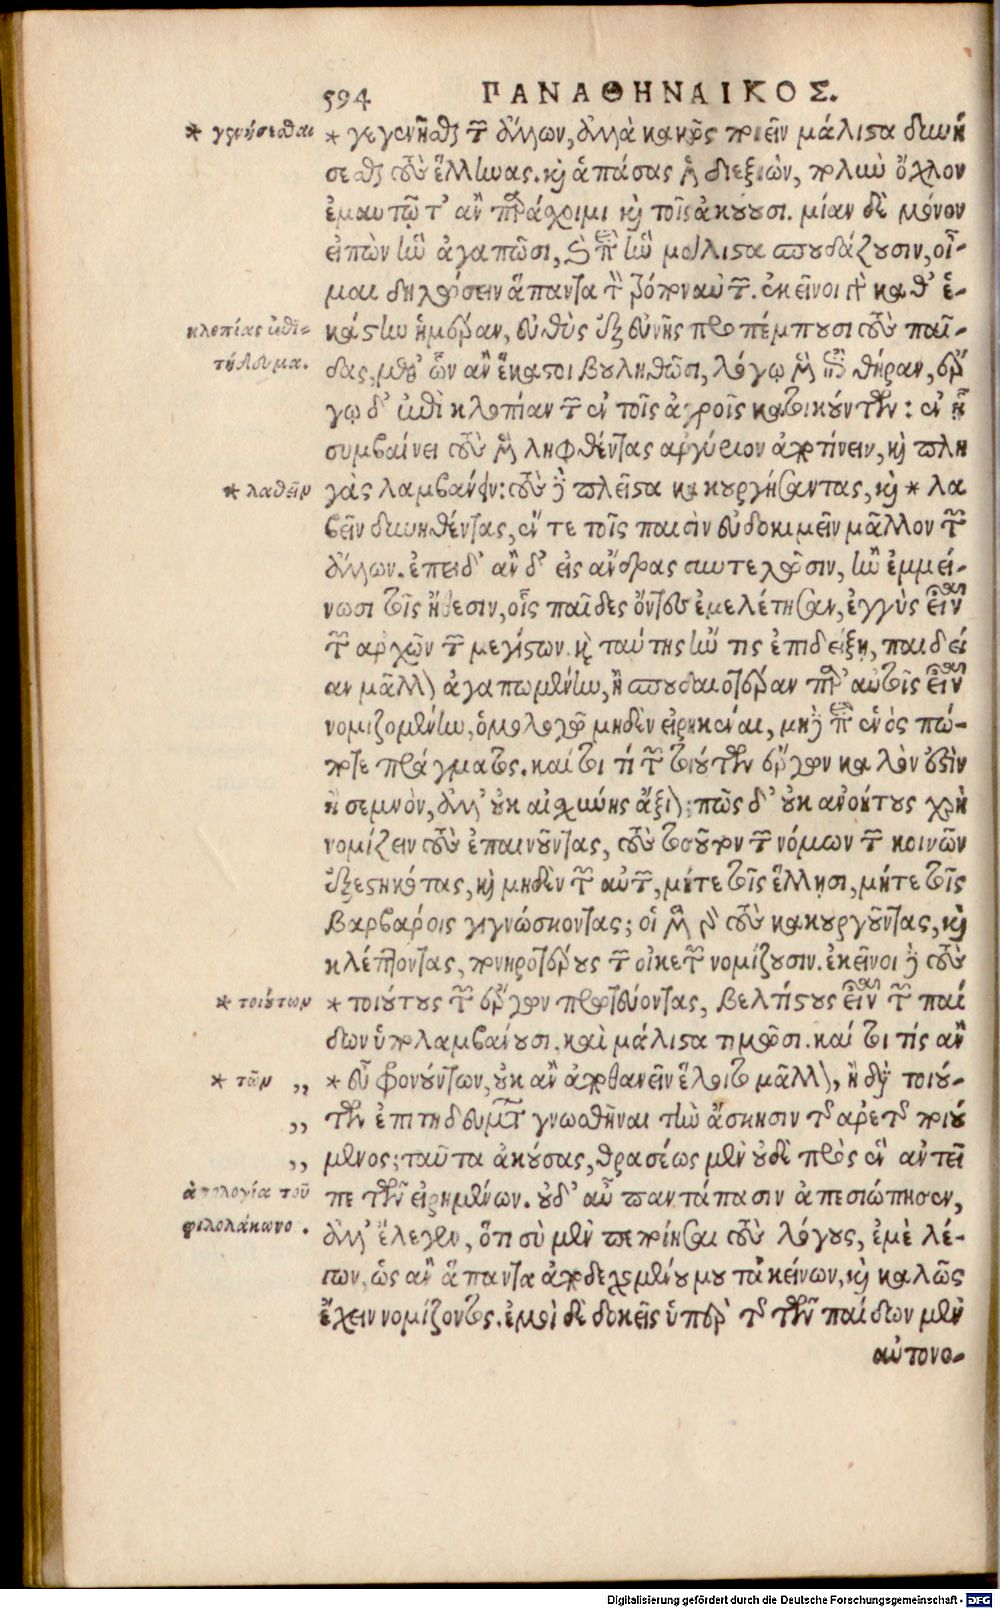 594 ΠΑΝΑΘΗΝΑΙΚΟΣ.
* γενήσεσθαι
* γεγενῆσθαι τῶν ἄλλων, ἀλλὰ κακῶς ποιεῖν μάλιστα δυνή
σεσθαι τοὺς ἕλληνας. καὶ ἁπάσας μὲν διεξιὼν, πολὺν ὄχλον
ἐμαυτῷ τ' ἂν παράσχοιμι καὶ τοῖς ἀκούουσι. μίαν δὲ μόνον
εἰπὼν ἣν ἀγαπῶσι, καὶ περὶ ἣν μάλιστα σπουδάζουσιν, οἶ-
μαι δηλώσειν ἅπαντα τὸν τρόπον αὐτῶν. ἐκεῖνοι γὰρ καθ' ἑ-
κάστην ἡμέραν, εὐθὺς ἐξ εὐνῆς προπέμπουσι τοὺς παῖ-
κλοπίας ἐπι-
τήδευμα.
δας, μεθ' ὧν ἂν ἕκαστοι βουληθῶσι, λόγῳ μὲν ἐπὶ θήραν, ἔρ
γῳ δ' ἐπὶ κλοπίαν τῶν ἐν τοῖς ἀγροῖς κατοικούντων: ἐν ᾗ
συμβαίνει τοὺς μὲν ληφθέντας ἀργύριον ἀποτίνειν, καὶ πλη
* λαθεῖν
γὰς λαμβάνειν: τοὺς δὲ πλεῖστα κακουργήσαντας, καὶ * λα
βεῖν δυνηθέντας, ἔν τε τοῖς παισὶν εὐδοκιμεῖν μᾶλλον τῶν
ἄλλων. ἐπειδ' ἂν δ' εἰς ἄνδρας συντελῶσιν, ἢν ἐμμεί-
νωσι τοῖς ἤθεσιν, οἷς παῖδες ὄντες ἐμελέτησαν, ἐγγὺς εἶναι
τῶν ἀρχῶν τῶν μεγίστων. καὶ ταύτης ἤν τις ἐπιδείξῃ, παιδεί
αν μᾶλλον ἀγαπωμένην, ἢ σπουδαιοτέραν παρ' αὐτοῖς εἶναι
νομιζομένην, ὁμολογῶ μηδὲν εἰρηκέναι, μηδὲ περὶ ἑνὸς πώ-
ποτε πράγματος. καίτοι τί τῶν τοιούτων ἔργων καλὸν ἐστὶν
ἢ σεμνὸν, ἀλλ' οὐκ αἰσχύνης ἄξιον; πῶς δ' οὐκ ἀνοήτους χρὴ
νομίζειν τοὺς ἐπαινοῦντας, τοὺς τοσοῦτον τῶν νόμων τῶν κοινῶν
ἐξεστηκότας, καὶ μηδὲν τῶν αὐτῶν, μήτε τοῖς ἕλλησι, μήτε τοῖς
βαρβάροις γιγνώσκοντας; οἱ μὲν γὰρ τοὺς κακουργοῦντας, καὶ
κλέπτοντας, πονηροτέρους τῶν οἰκετῶν νομίζουσιν. ἐκεῖνοι δὲ τοὺς
* τοιούτων
* τοιούτους τῶν ἔργων πρωτεύοντας, βελτίστους εἶναι τῶν παί
δων ὑπολαμβάνουσι. καὶ μάλιστα τιμῶσι. καίτοι τίς ἂν
* τῶν ,,
* εὖ φρονούντων, οὐκ ἂν ἀποθανεῖν ἕλοιτο μᾶλλον, ἢ διὰ τοιού-
,, των ἐπιτηδευμάτων γνωσθῆναι τὴν ἄσκησιν τῆς ἀρετῆς ποιού
,, μενος; ταῦτα ἀκούσας, θρασέως μὲν οὐδὲ πρὸς ἓν ἀντεῖ
ἀπολογία τοῦ
φιλολάκωνος.
πε τῶν εἰρημένων. οὐδ' αὖ παντάπασιν ἀπεσιώπησεν,
ἀλλ' ἔλεγεν, ὅτι σὺ μὲν πεποίησαι τοὺς λόγους, ἐμὲ λέ-
γων, ὡς ἂν ἅπαντα ἀποδεχομένου μου τἀκείνων, καὶ καλῶς
ἔχειν νομίζοντος. ἐμοὶ δὲ δοκεῖς ὑπὲρ τῆς τῶν παίδων μὲν
αὐτονο-
Digitalisierung gefördert durch die Deutsche Forschungsgemeinschaft - DFG